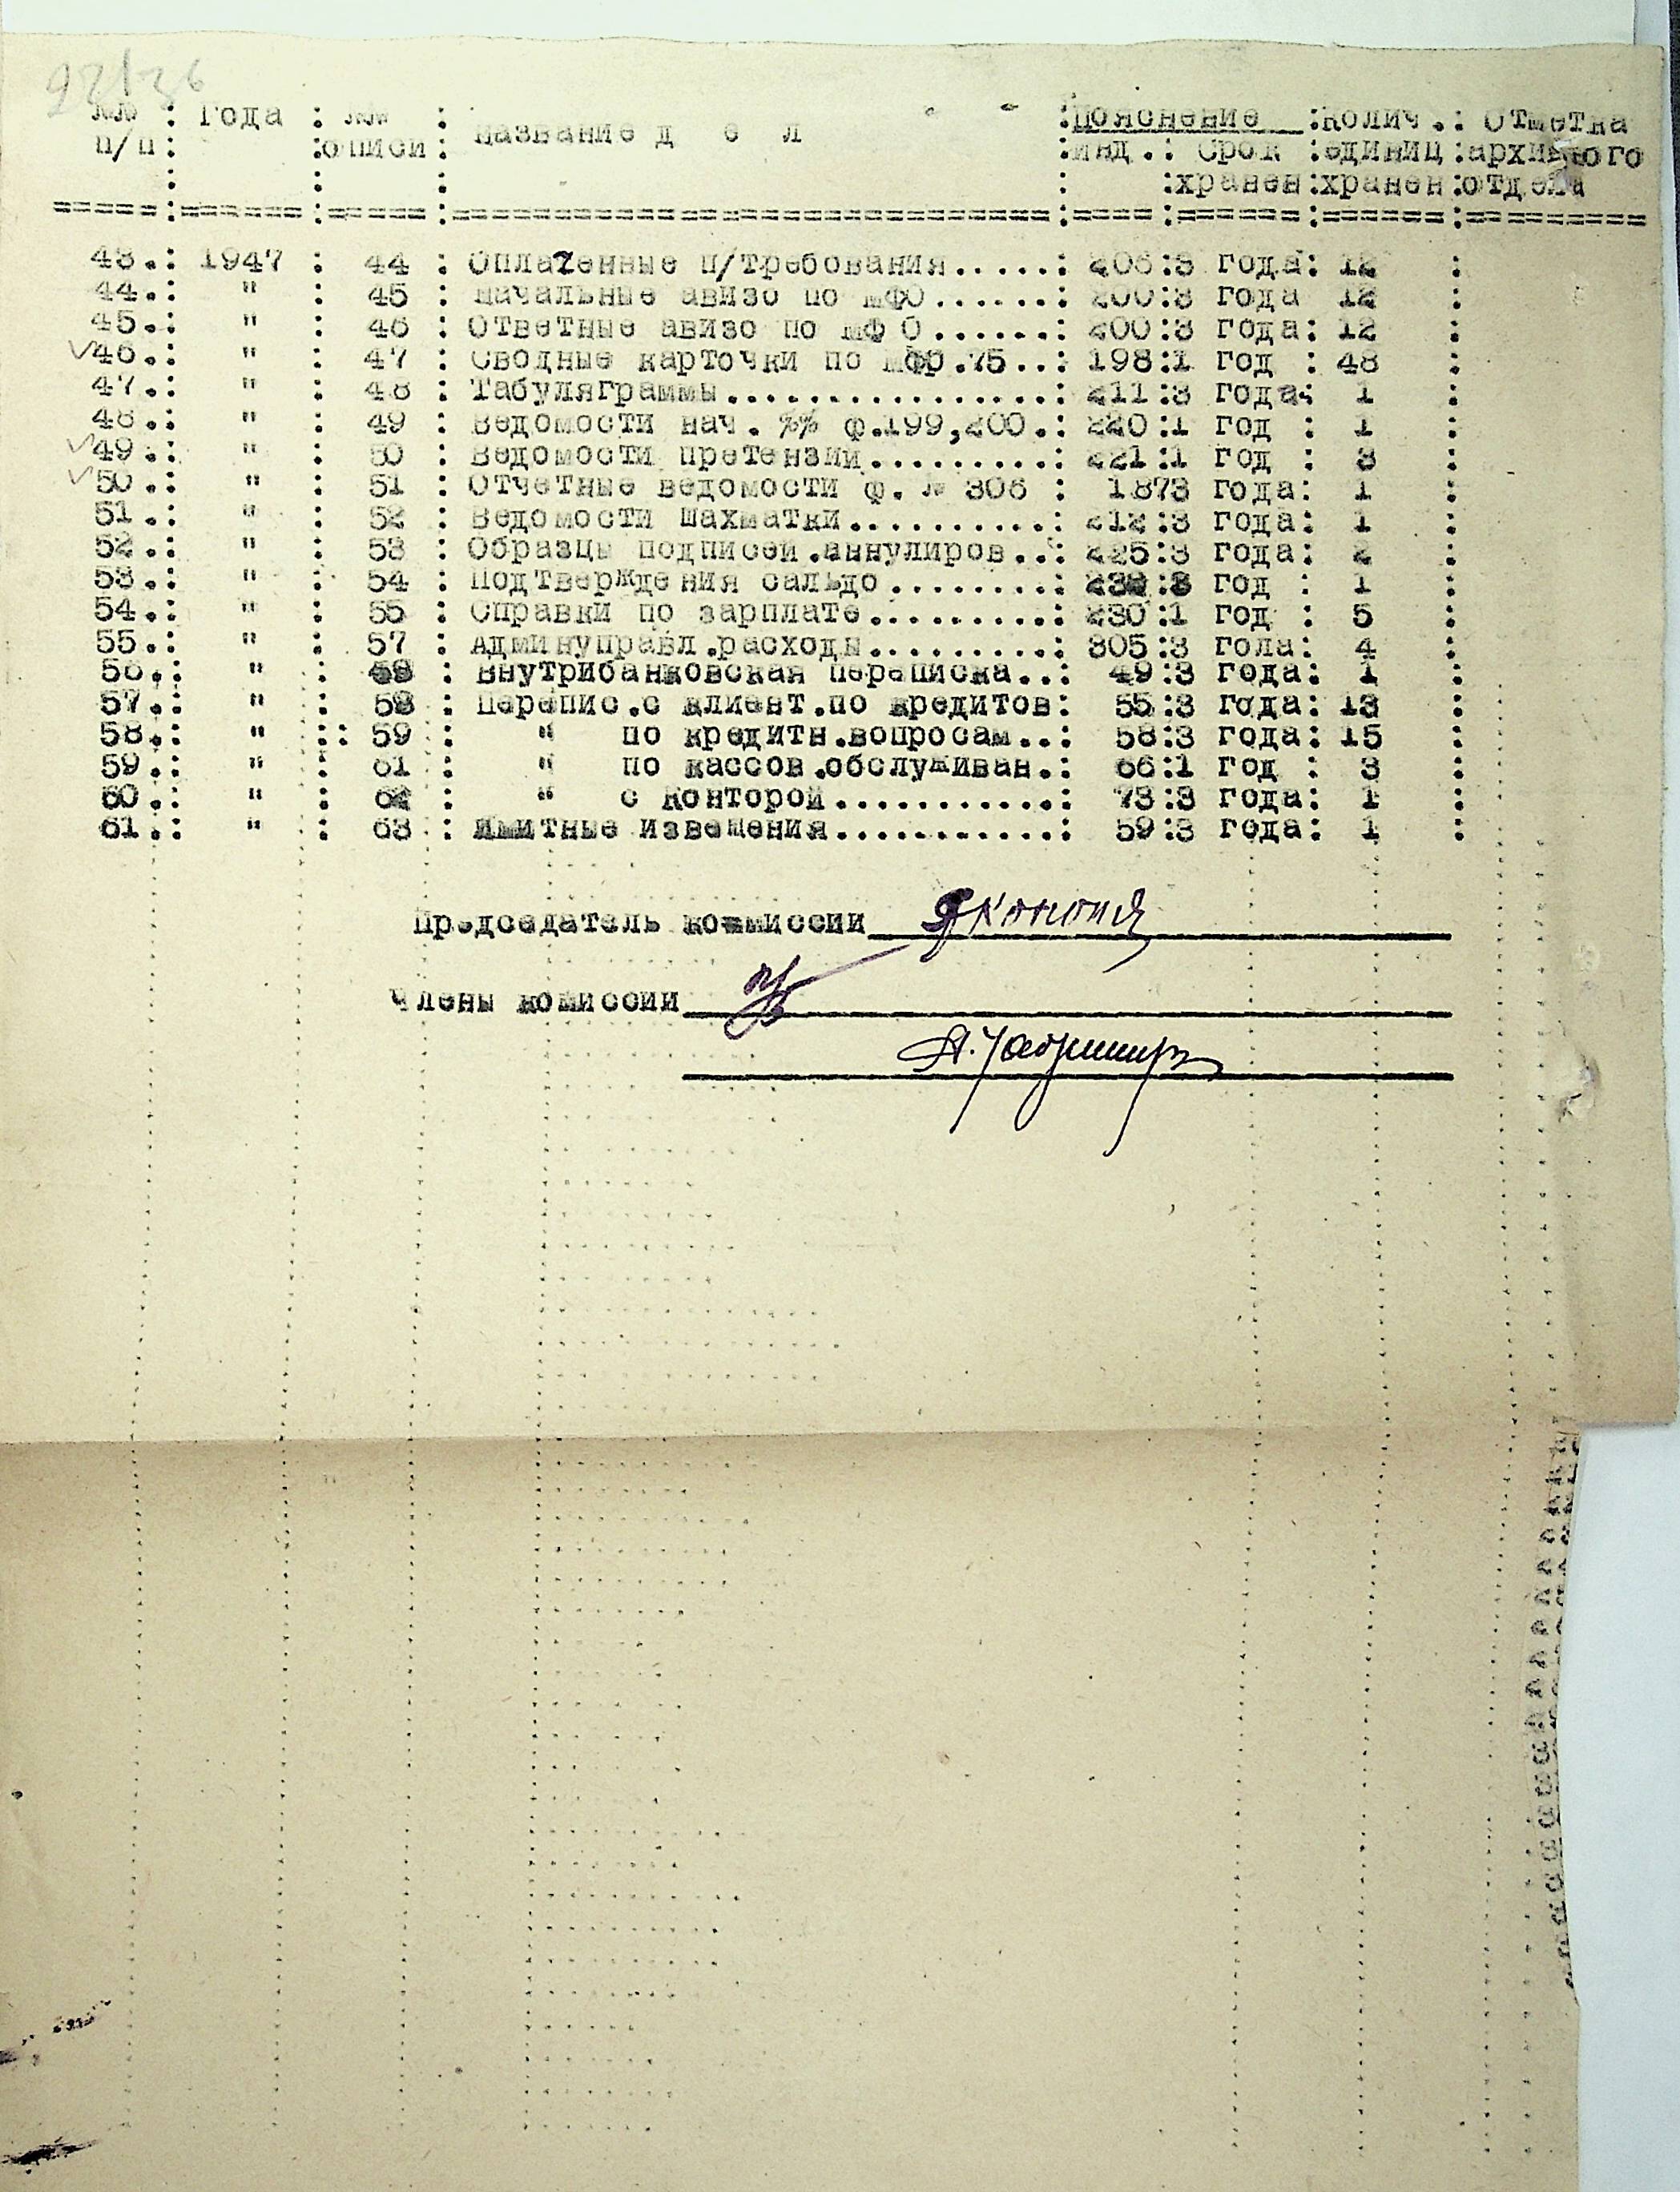 №№ : Года : №№ : Название д е л :Пояснение :Колич.: Отметка
п/п: :описи: :инд.: Срок :единиц:архивного
:хранен:хранен:отдела
43.: 1947 : 44 : Оплаченные п/требования.....: 206:3 года: 12 :
44.: " : 45 : Начальные авизо по МФО......: 200:3 года 12 :
45.: " : 46 : Ответные авизо по МФ О......: 200:3 года: 12 :
√46.: " : 47 : Сводные карточки по Мфр.75..: 198:1 год : 48 :
47.: " : 48 : Табуляграммы................: 211:3 года: 1 :
48.: " : 49 : Ведомости нач. %% ф.199,200.: 220:1 год : 1 :
√49.: " : 50 : Ведомости претензий.........: 221:1 год : 3 :
√50.: " : 51 : Отчетные ведомости ф. № 306 : 1873 года: 1 :
51.: " : 52 : Ведомости шахматки..........: 212:3 года: 1 :
52.: " : 53 : Образцы подписей.аннулиров..: 225:3 года: 2 :
53.: " : 54 : Подтверждения сальдо ........: :3 год : 1 :
54.: " : 55 : Справки по зарплате.........: 230:1 год : 5 :
55.: " : 57 : Админуправл.расходы.........: 305:3 гола: 4 :
56.: " : : Внутрибанковская переписка..: 49:3 года: 1 :
57.: " : 58 : Перепис.с клиент.по кредитов: 55:3 года: 13 :
58.: " :: 59 : " по кредитн.вопросам..: 58:3 года: 15 :
59.: " : 61 : " по кассов.обслуживан.: 66:1 год : 3 :
60.: " : 62 : " с Конторой...........: 73:3 года: 1 :
61.: " : 63 : Лимитные извещения...........: 59:3 года: 1 :
Председатель коммиссии
Члены комиссии